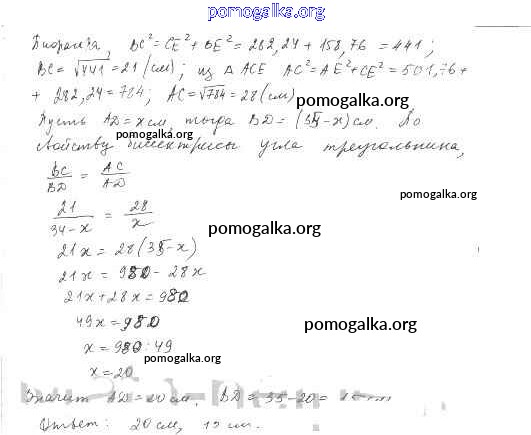 pomogalka.org
Пифагора, BC² = CE² + BE² = 282,24 + 158,76 = 441;
BC = √441 = 21 (см); из △ ACE AC² = AE² + CE² = 501,76 +
+ 282,24 = 784; AC = √784 = 28 (см)
pomogalka.org
Пусть AD = x см, тогда BD = (35 - x) см. По
pomogalka.org
свойству биссектрисы угла треугольника,
BC/BD = AC/AD
pomogalka.org
21/34-x = 28/x
pomogalka.org
21x = 28(35 - x)
21x = 980 - 28x
21x + 28x = 980
49x = 980
pomogalka.org
x = 980 : 49
pomogalka.org
x = 20
Значит AD = 20 см, BD = 35 - 20 =
Ответ: 20 см, 15 см.
pomogalka.org